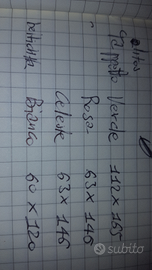 Verde 112 x 165
Rosa 63 x 146
Celeste 63 x 146
Bianco 60 x 120
subito